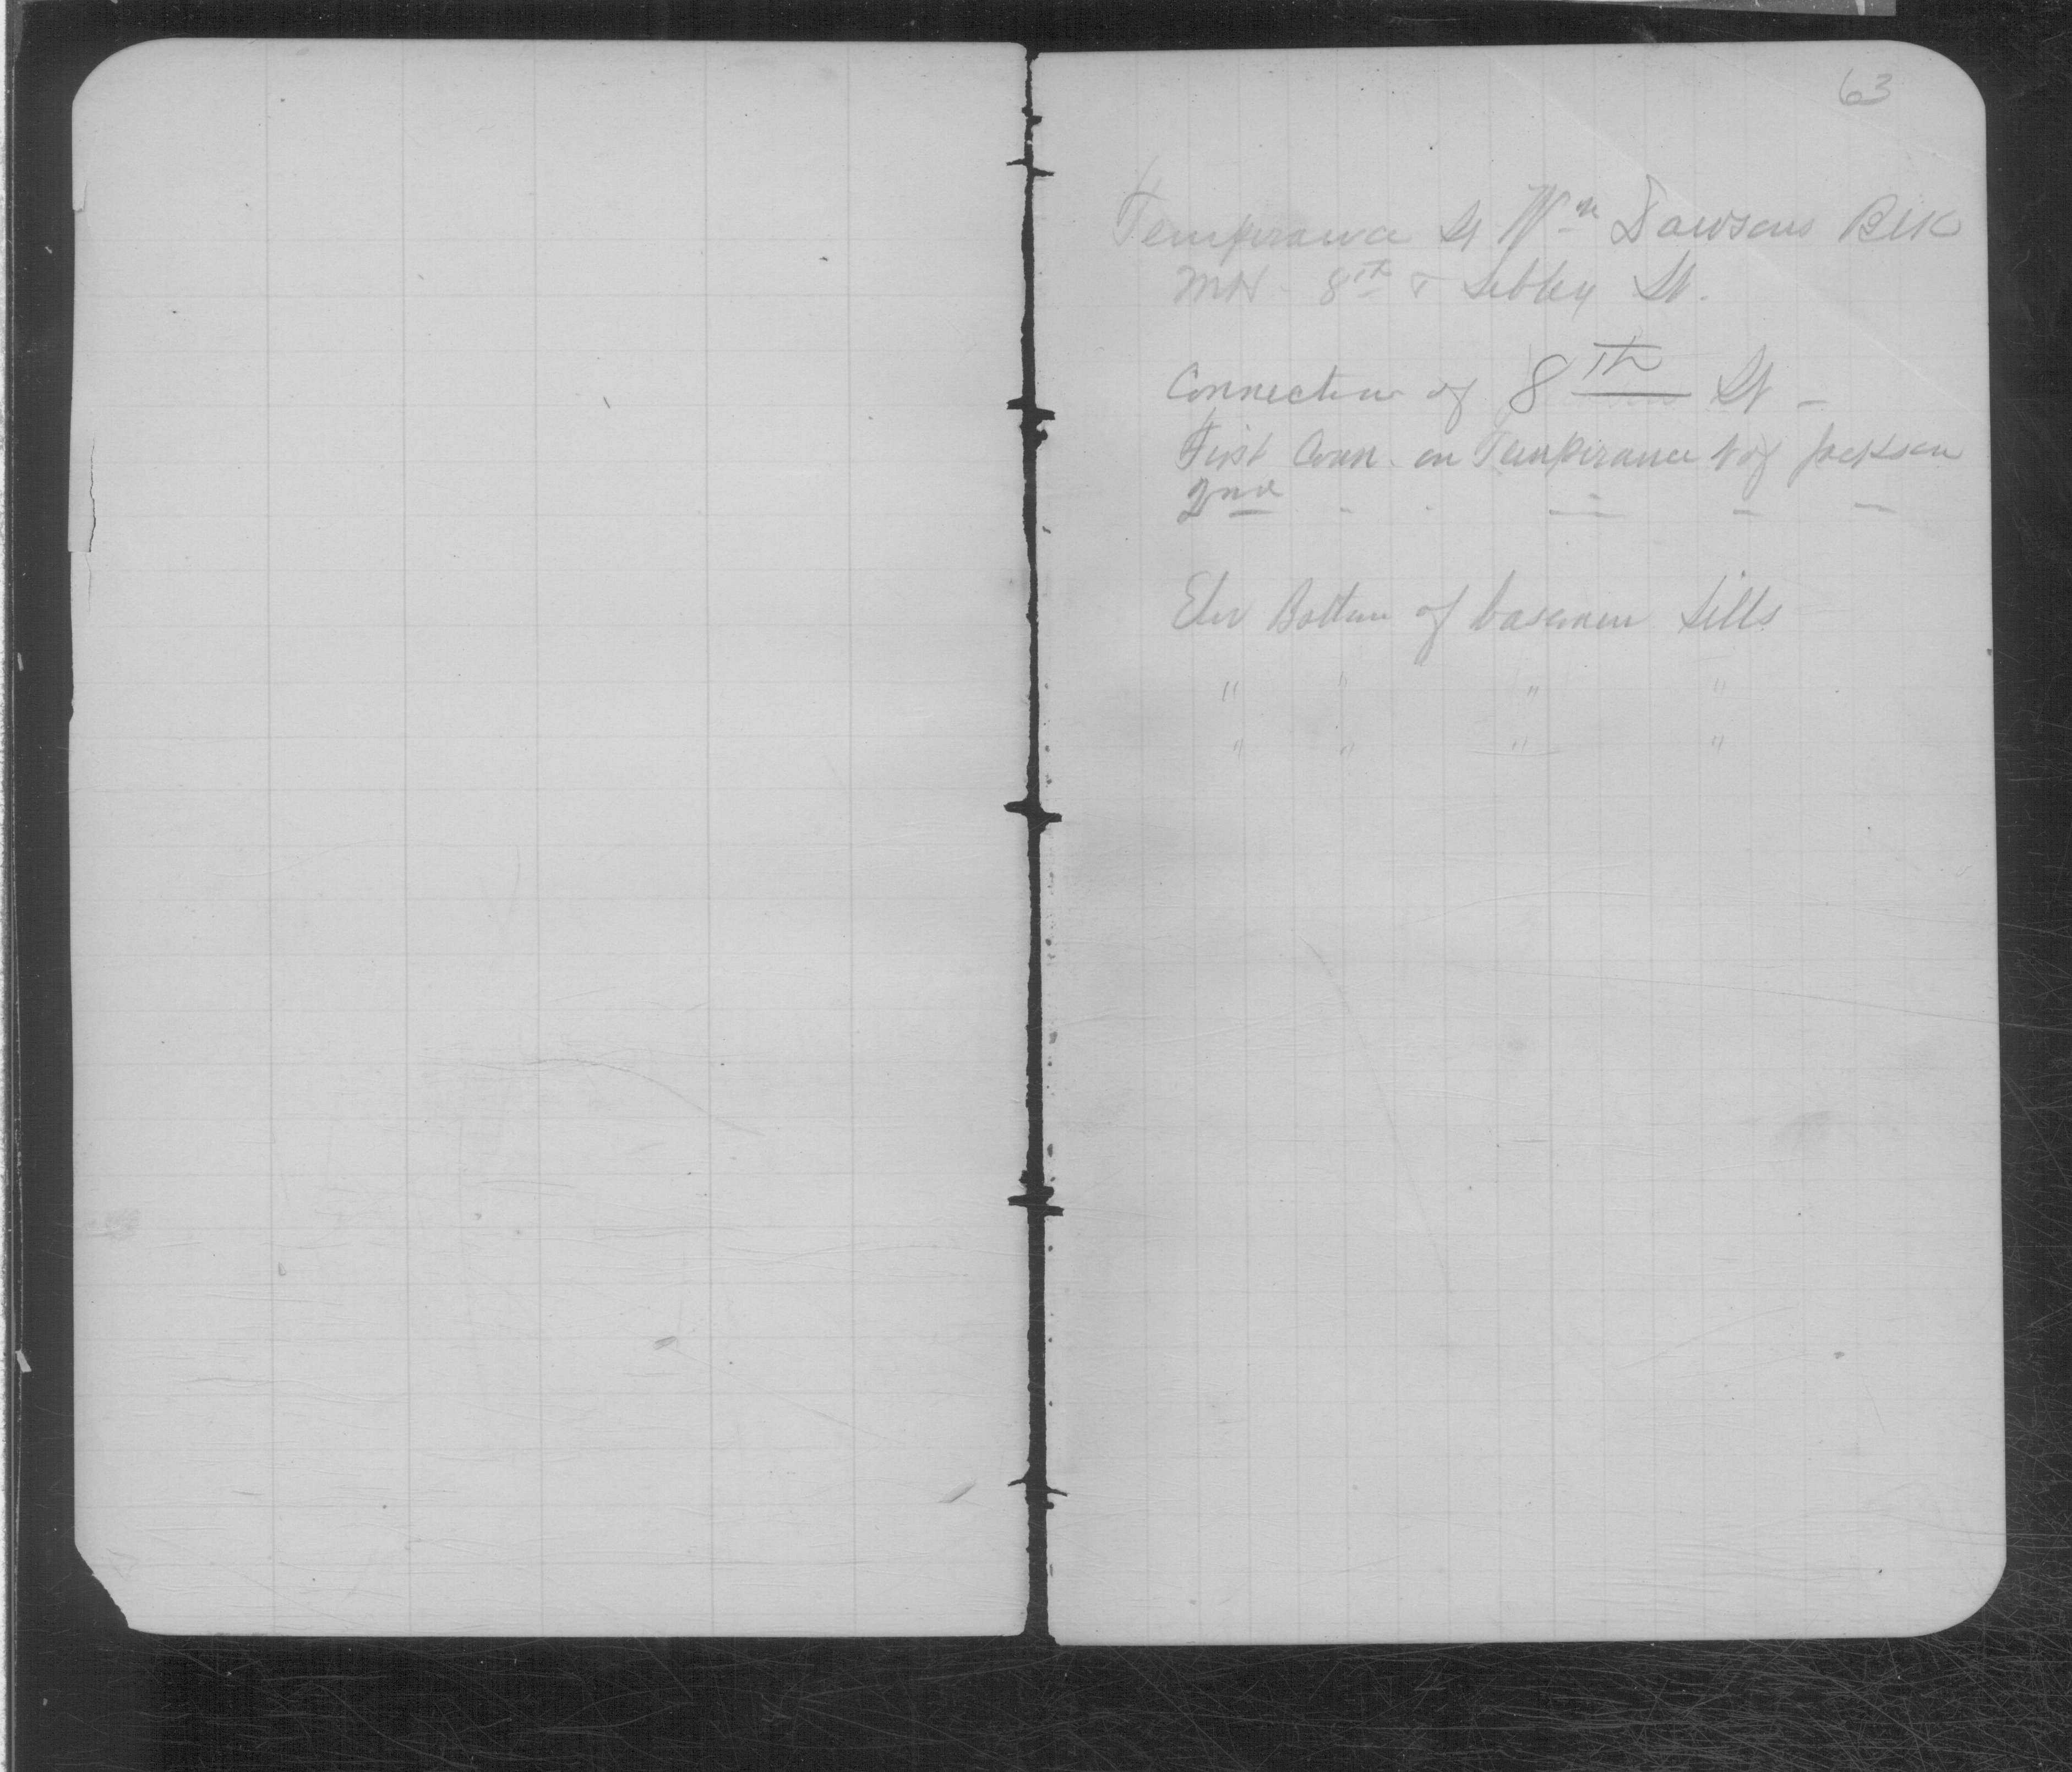 63
Temperance St Wm Dawsons Blk
MH - 8th & Sibley St.
Connection of 8th St -
First Conn. on Temperance N of Jackson
2nd - - - - -
Elev Bottom of basemen sills
" " " "
" " " "